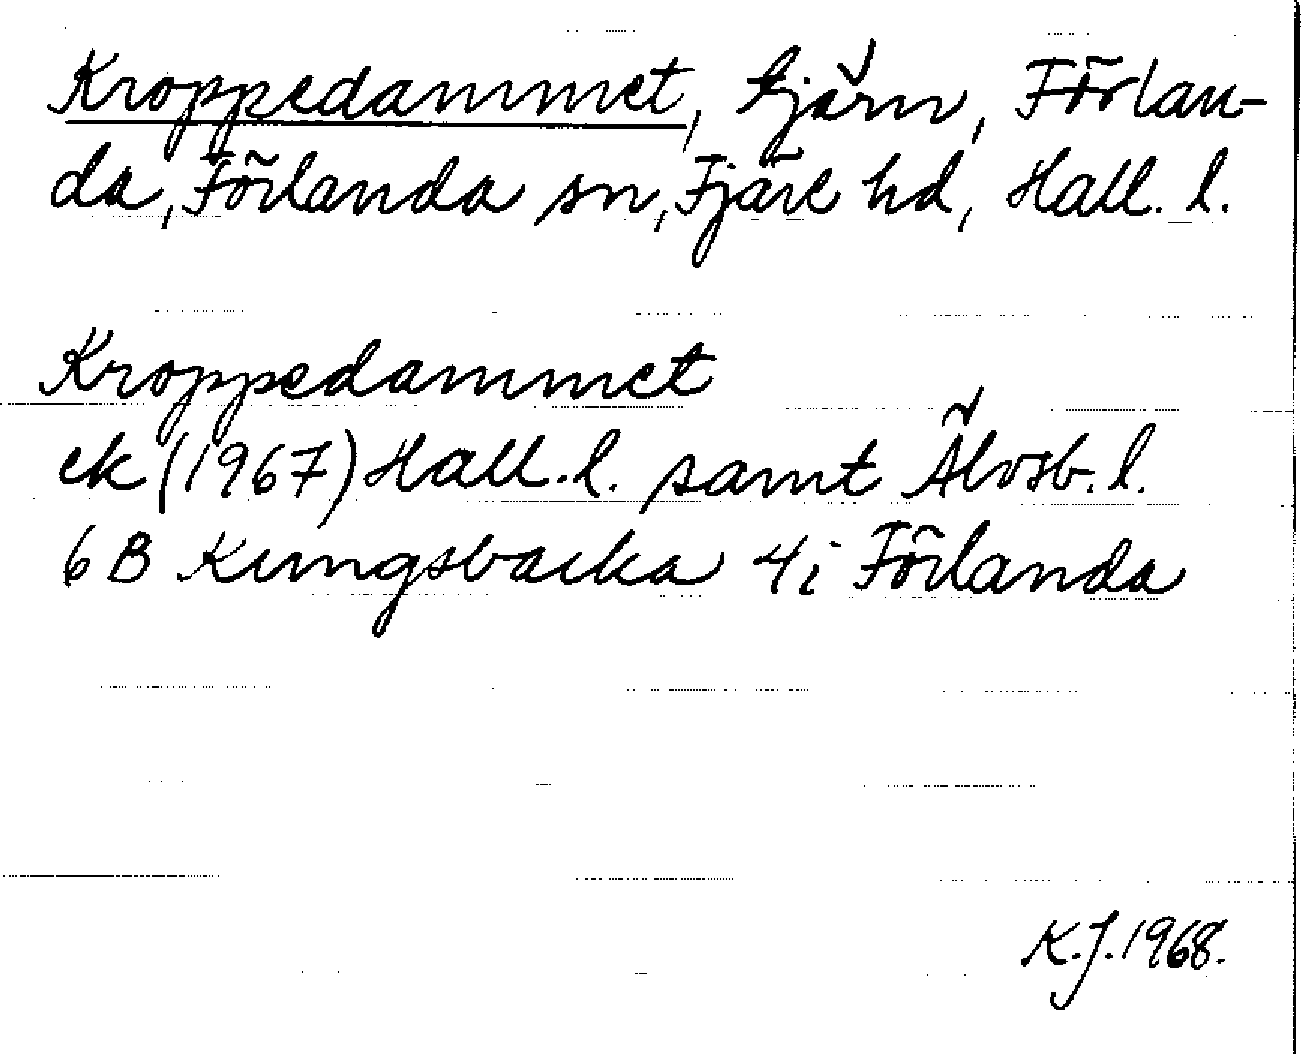 Kroppedammet, tjärn, Förlan-
da, Förlanda sn, Fjäre hd, Hall. l.
Kroppedammet
ek (1967) Hall. l. samt Älvsb. l.
6B Kungsbacka 4i Förlanda
K.J. 1968.